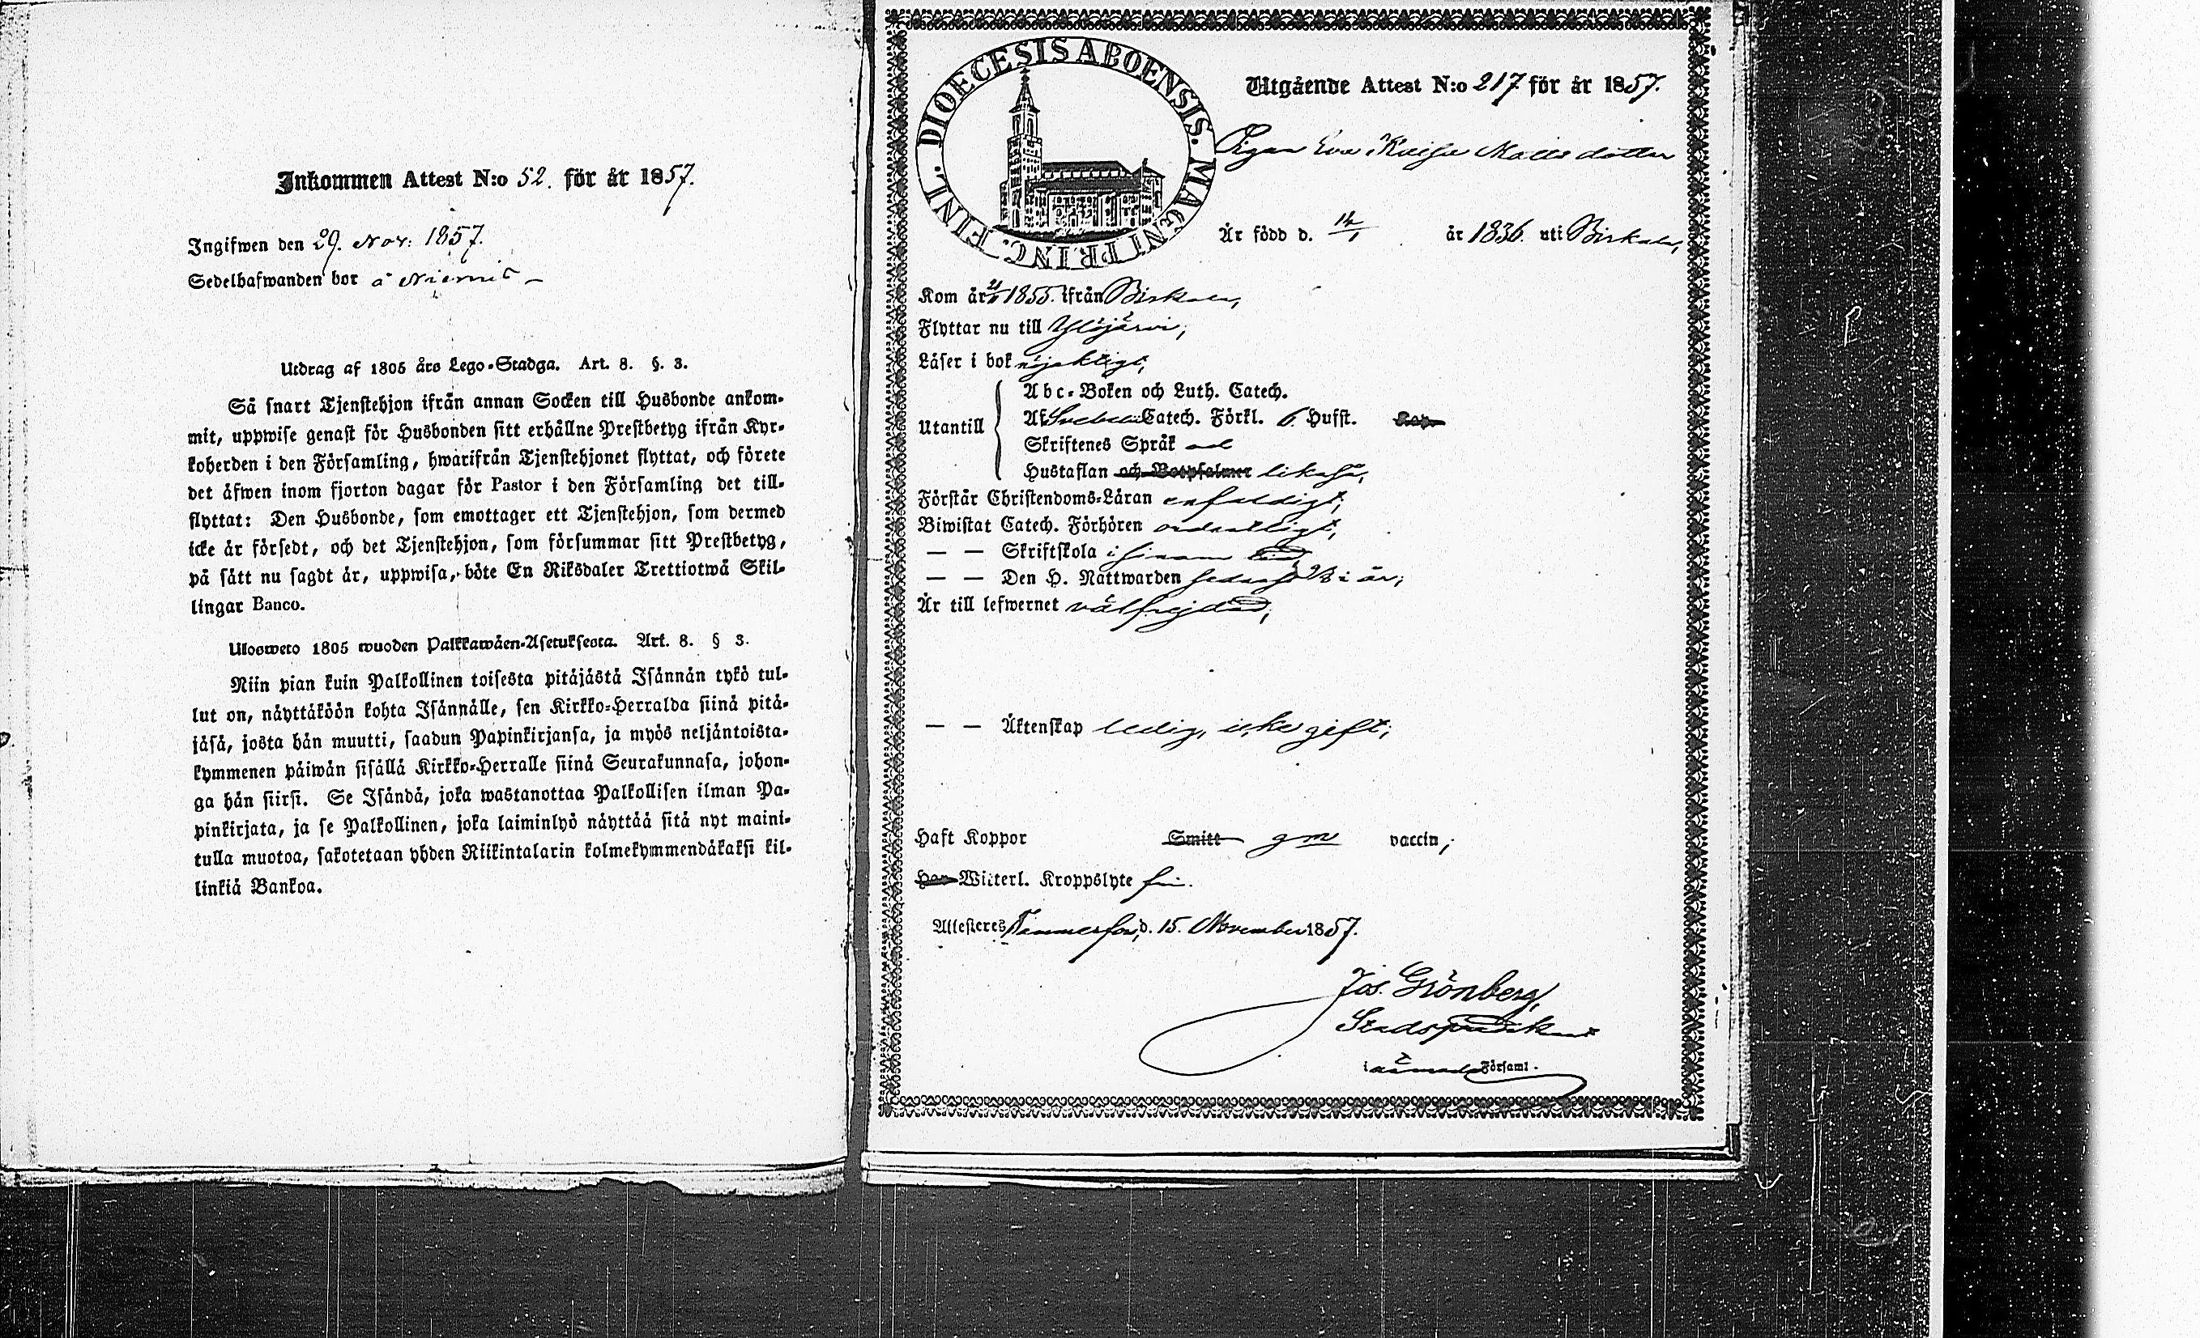 Inkommen Attest N:o 52. för år 1857.
Ingifwen den 29. Nov: 1857.
Sedelhafwanden bor å Niemis –
Utdrag af 1805 års Lego-Stadga. Art. 8. §. 3.
Så snart Tjenstehjon ifrån annan Socken till Husbonde ankom-
mit, uppwise genast för Husbonden sitt erhållne Prestbetyg ifrån Kyr-
koherden i den Församling, hwarifrån Tjenstehjonet flyttat, och förete
det äfwen inom fjorton dagar för Pastor i den Församling det till-
flyttat: Den Husbonde, som emottager ett Tjenstehjon, som dermed
icke är försedt, och det Tjenstehjon, som försummar sitt Prestbetyg,
på sätt nu sagdt är, uppwisa, böte En Riksdaler Trettiotwå Skil-
lingar Banco.
Ulosweto 1805 wuoden Palkkawäen-Asetuksesta. Art. 8. § 3.
Niin pian kuin Palkollinen toisesta pitäjästä Isännän tykö tul-
lut on, näyttäköön kohta Isännälle, sen Kirkko-Herralda siinä pitä-
jäsä, josta hän muutti, saadun Papinkirjansa, ja myös neljäntoista-
kymmenen päiwän sisällä Kirkko-Herralle siinä Seurakunnasa, johon-
ga hän siirsi. Se Isändä, joka wastanottaa Palkollisen ilman Pa-
pinkirjata, ja se Palkollinen, joka laiminlyö näyttää sitä nyt maini-
tulla muotoa, sakotetaan yhden Riikintalarin kolmekymmendäkaksi kil-
linkiä Bankoa.
DIOECESIS ABOENSIS. MAGNI PRINC. FINL.
Utgående Attest N:o 217 för år 1857.
Pigan Eva Kaisa Matts dotter
Är född d. 14/1 år 1836. uti Birkala,
Kom år 1855. ifrån Birkala,
Flyttar nu till Ylöjärvi,
Läser i bok nöjaktigt,
Utantill
Abc-Boken och Luth. Catech.
Af Svebelii Catech. Förkl. 6 Hufst. Kap.
Skriftenes Språk
Hustaflan och Botpsalmer likaså,
Förstår Christendoms-Läran enfaldigt,
Biwistat Catech. Förhören ordentligt,
— — Skriftskola i sinom tid,
— — Den H. Nattwarden i år,
Är till lefwernet välfrejdad,
— — Äktenskap ledig, icke gift,
Haft Koppor Smitt gm vaccin,
Har Witterl. Kroppslyte fri.
Attesteres Tammerfors, d. 15. November 1857.
Jos. Grönberg,
Stadspredikant
i Församl.